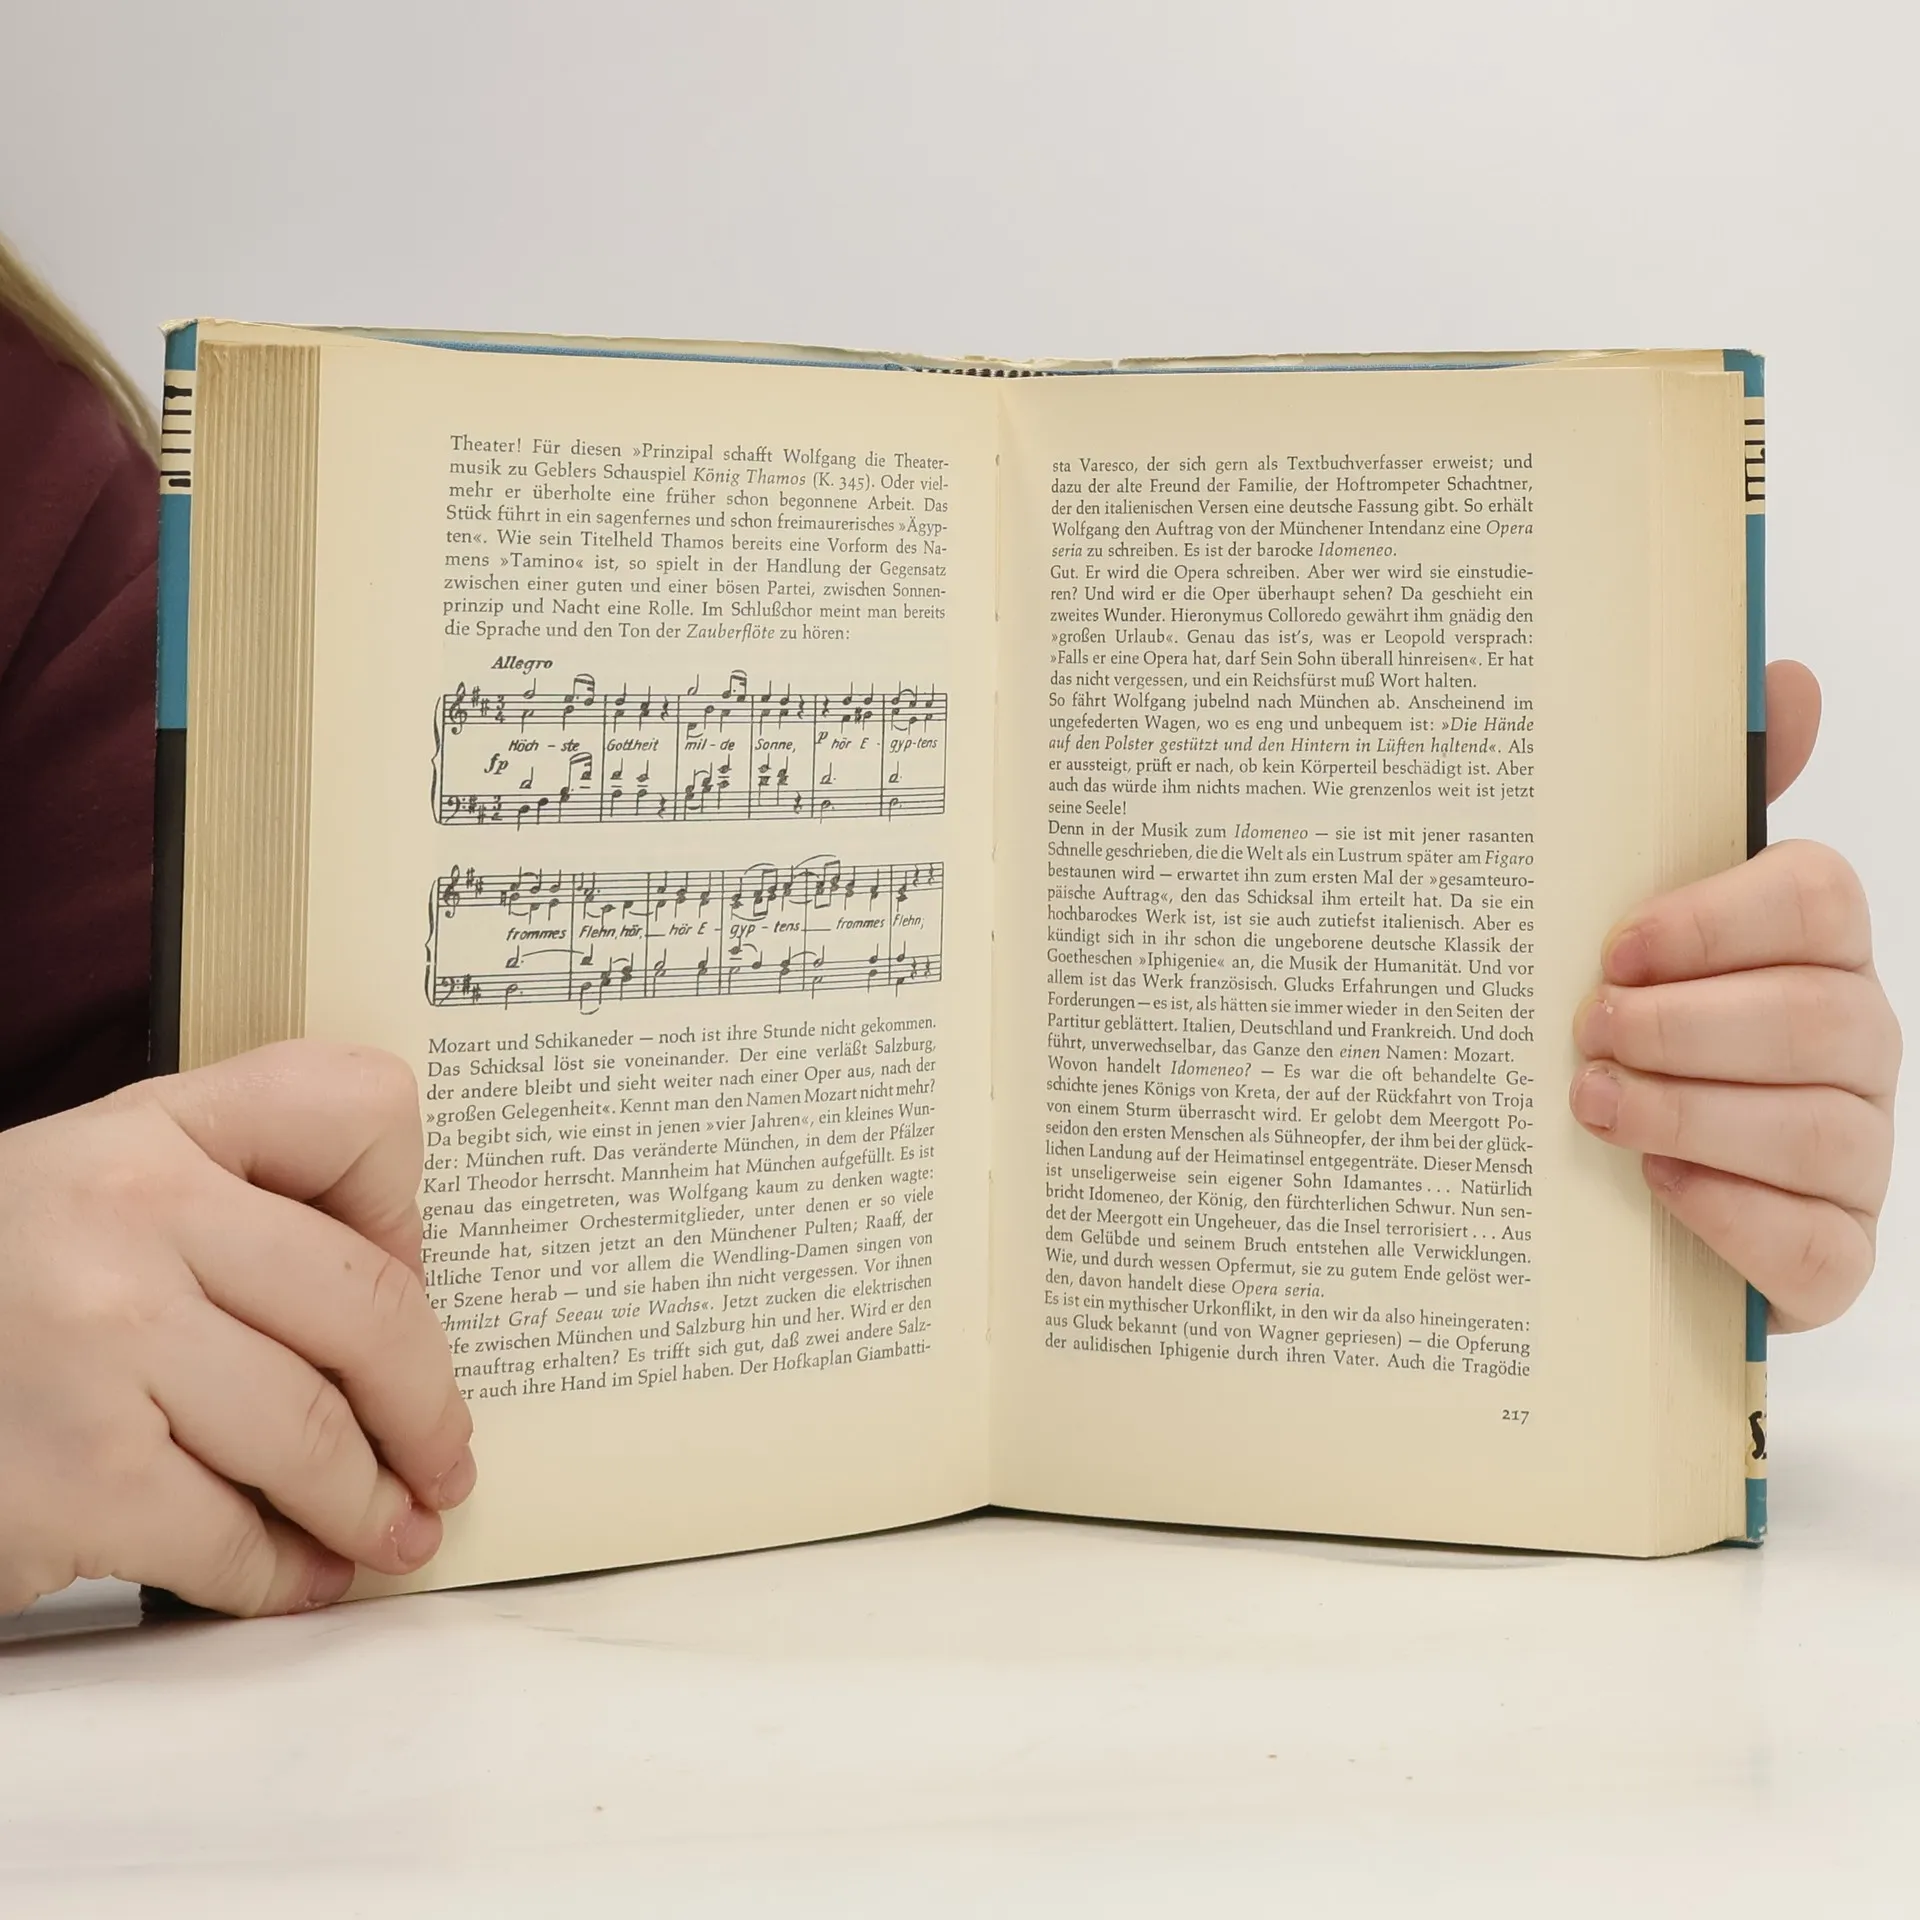 Theater! Für diesen »Prinzipal schafft Wolfgang die Theater-
musik zu Geblers Schauspiel König Thamos (K. 345). Oder viel-
mehr er überholte eine früher schon begonnene Arbeit. Das
Stück führt in ein sagenfernes und schon freimaurerisches »Ägyp-
ten«. Wie sein Titelheld Thamos bereits eine Vorform des Na-
mens »Tamino« ist, so spielt in der Handlung der Gegensatz
zwischen einer guten und einer bösen Partei, zwischen Sonnen-
prinzip und Nacht eine Rolle. Im Schlußchor meint man bereits
die Sprache und den Ton der Zauberflöte zu hören:
Allegro
Höch - ste Gottheit mil - de Sonne, p hör E - gyp-tens
fp
frommes Flehn, hör, hör E - gyp - tens frommes Flehn;
Mozart und Schikaneder — noch ist ihre Stunde nicht gekommen.
Das Schicksal löst sie voneinander. Der eine verläßt Salzburg,
der andere bleibt und sieht weiter nach einer Oper aus, nach der
»großen Gelegenheit«. Kennt man den Namen Mozart nicht mehr?
Da begibt sich, wie einst in jenen »vier Jahren«, ein kleines Wun-
der: München ruft. Das veränderte München, in dem der Pfälzer
Karl Theodor herrscht. Mannheim hat München aufgefüllt. Es ist
genau das eingetreten, was Wolfgang kaum zu denken wagte:
die Mannheimer Orchestermitglieder, unter denen er so viele
Freunde hat, sitzen jetzt an den Münchener Pulten; Raaff, der
ältliche Tenor und vor allem die Wendling-Damen singen von
der Szene herab — und sie haben ihn nicht vergessen. Vor ihnen
chmilzt Graf Seeau wie Wachs«. Jetzt zucken die elektrischen
efe zwischen München und Salzburg hin und her. Wird er den
rnauftrag erhalten? Es trifft sich gut, daß zwei andere Salz-
er auch ihre Hand im Spiel haben. Der Hofkaplan Giambatti-
sta Varesco, der sich gern als Textbuchverfasser erweist; und
dazu der alte Freund der Familie, der Hoftrompeter Schachtner,
der den italienischen Versen eine deutsche Fassung gibt. So erhält
Wolfgang den Auftrag von der Münchener Intendanz eine Opera
seria zu schreiben. Es ist der barocke Idomeneo.
Gut. Er wird die Opera schreiben. Aber wer wird sie einstudie-
ren? Und wird er die Oper überhaupt sehen? Da geschieht ein
zweites Wunder. Hieronymus Colloredo gewährt ihm gnädig den
»großen Urlaub«. Genau das ist's, was er Leopold versprach:
»Falls er eine Opera hat, darf Sein Sohn überall hinreisen«. Er hat
das nicht vergessen, und ein Reichsfürst muß Wort halten.
So fährt Wolfgang jubelnd nach München ab. Anscheinend im
ungefederten Wagen, wo es eng und unbequem ist: »Die Hände
auf den Polster gestützt und den Hintern in Lüften haltend«. Als
er aussteigt, prüft er nach, ob kein Körperteil beschädigt ist. Aber
auch das würde ihm nichts machen. Wie grenzenlos weit ist jetzt
seine Seele!
Denn in der Musik zum Idomeneo — sie ist mit jener rasanten
Schnelle geschrieben, die die Welt als ein Lustrum später am Figaro
bestaunen wird — erwartet ihn zum ersten Mal der »gesamteuro-
päische Auftrag«, den das Schicksal ihm erteilt hat. Da sie ein
hochbarockes Werk ist, ist sie auch zutiefst italienisch. Aber es
kündigt sich in ihr schon die ungeborene deutsche Klassik der
Goetheschen »Iphigenie« an, die Musik der Humanität. Und vor
allem ist das Werk französisch. Glucks Erfahrungen und Glucks
Forderungen — es ist, als hätten sie immer wieder in den Seiten der
Partitur geblättert. Italien, Deutschland und Frankreich. Und doch
führt, unverwechselbar, das Ganze den einen Namen: Mozart.
Wovon handelt Idomeneo? — Es war die oft behandelte Ge-
schichte jenes Königs von Kreta, der auf der Rückfahrt von Troja
von einem Sturm überrascht wird. Er gelobt dem Meergott Po-
seidon den ersten Menschen als Sühneopfer, der ihm bei der glück-
lichen Landung auf der Heimatinsel entgegenträte. Dieser Mensch
ist unseligerweise sein eigener Sohn Idamantes... Natürlich
bricht Idomeneo, der König, den fürchterlichen Schwur. Nun sen-
det der Meergott ein Ungeheuer, das die Insel terrorisiert... Aus
dem Gelübde und seinem Bruch entstehen alle Verwicklungen.
Wie, und durch wessen Opfermut, sie zu gutem Ende gelöst wer-
den, davon handelt diese Opera seria.
Es ist ein mythischer Urkonflikt, in den wir da also hineingeraten:
aus Gluck bekannt (und von Wagner gepriesen) — die Opferung
der aulidischen Iphigenie durch ihren Vater. Auch die Tragödie
217